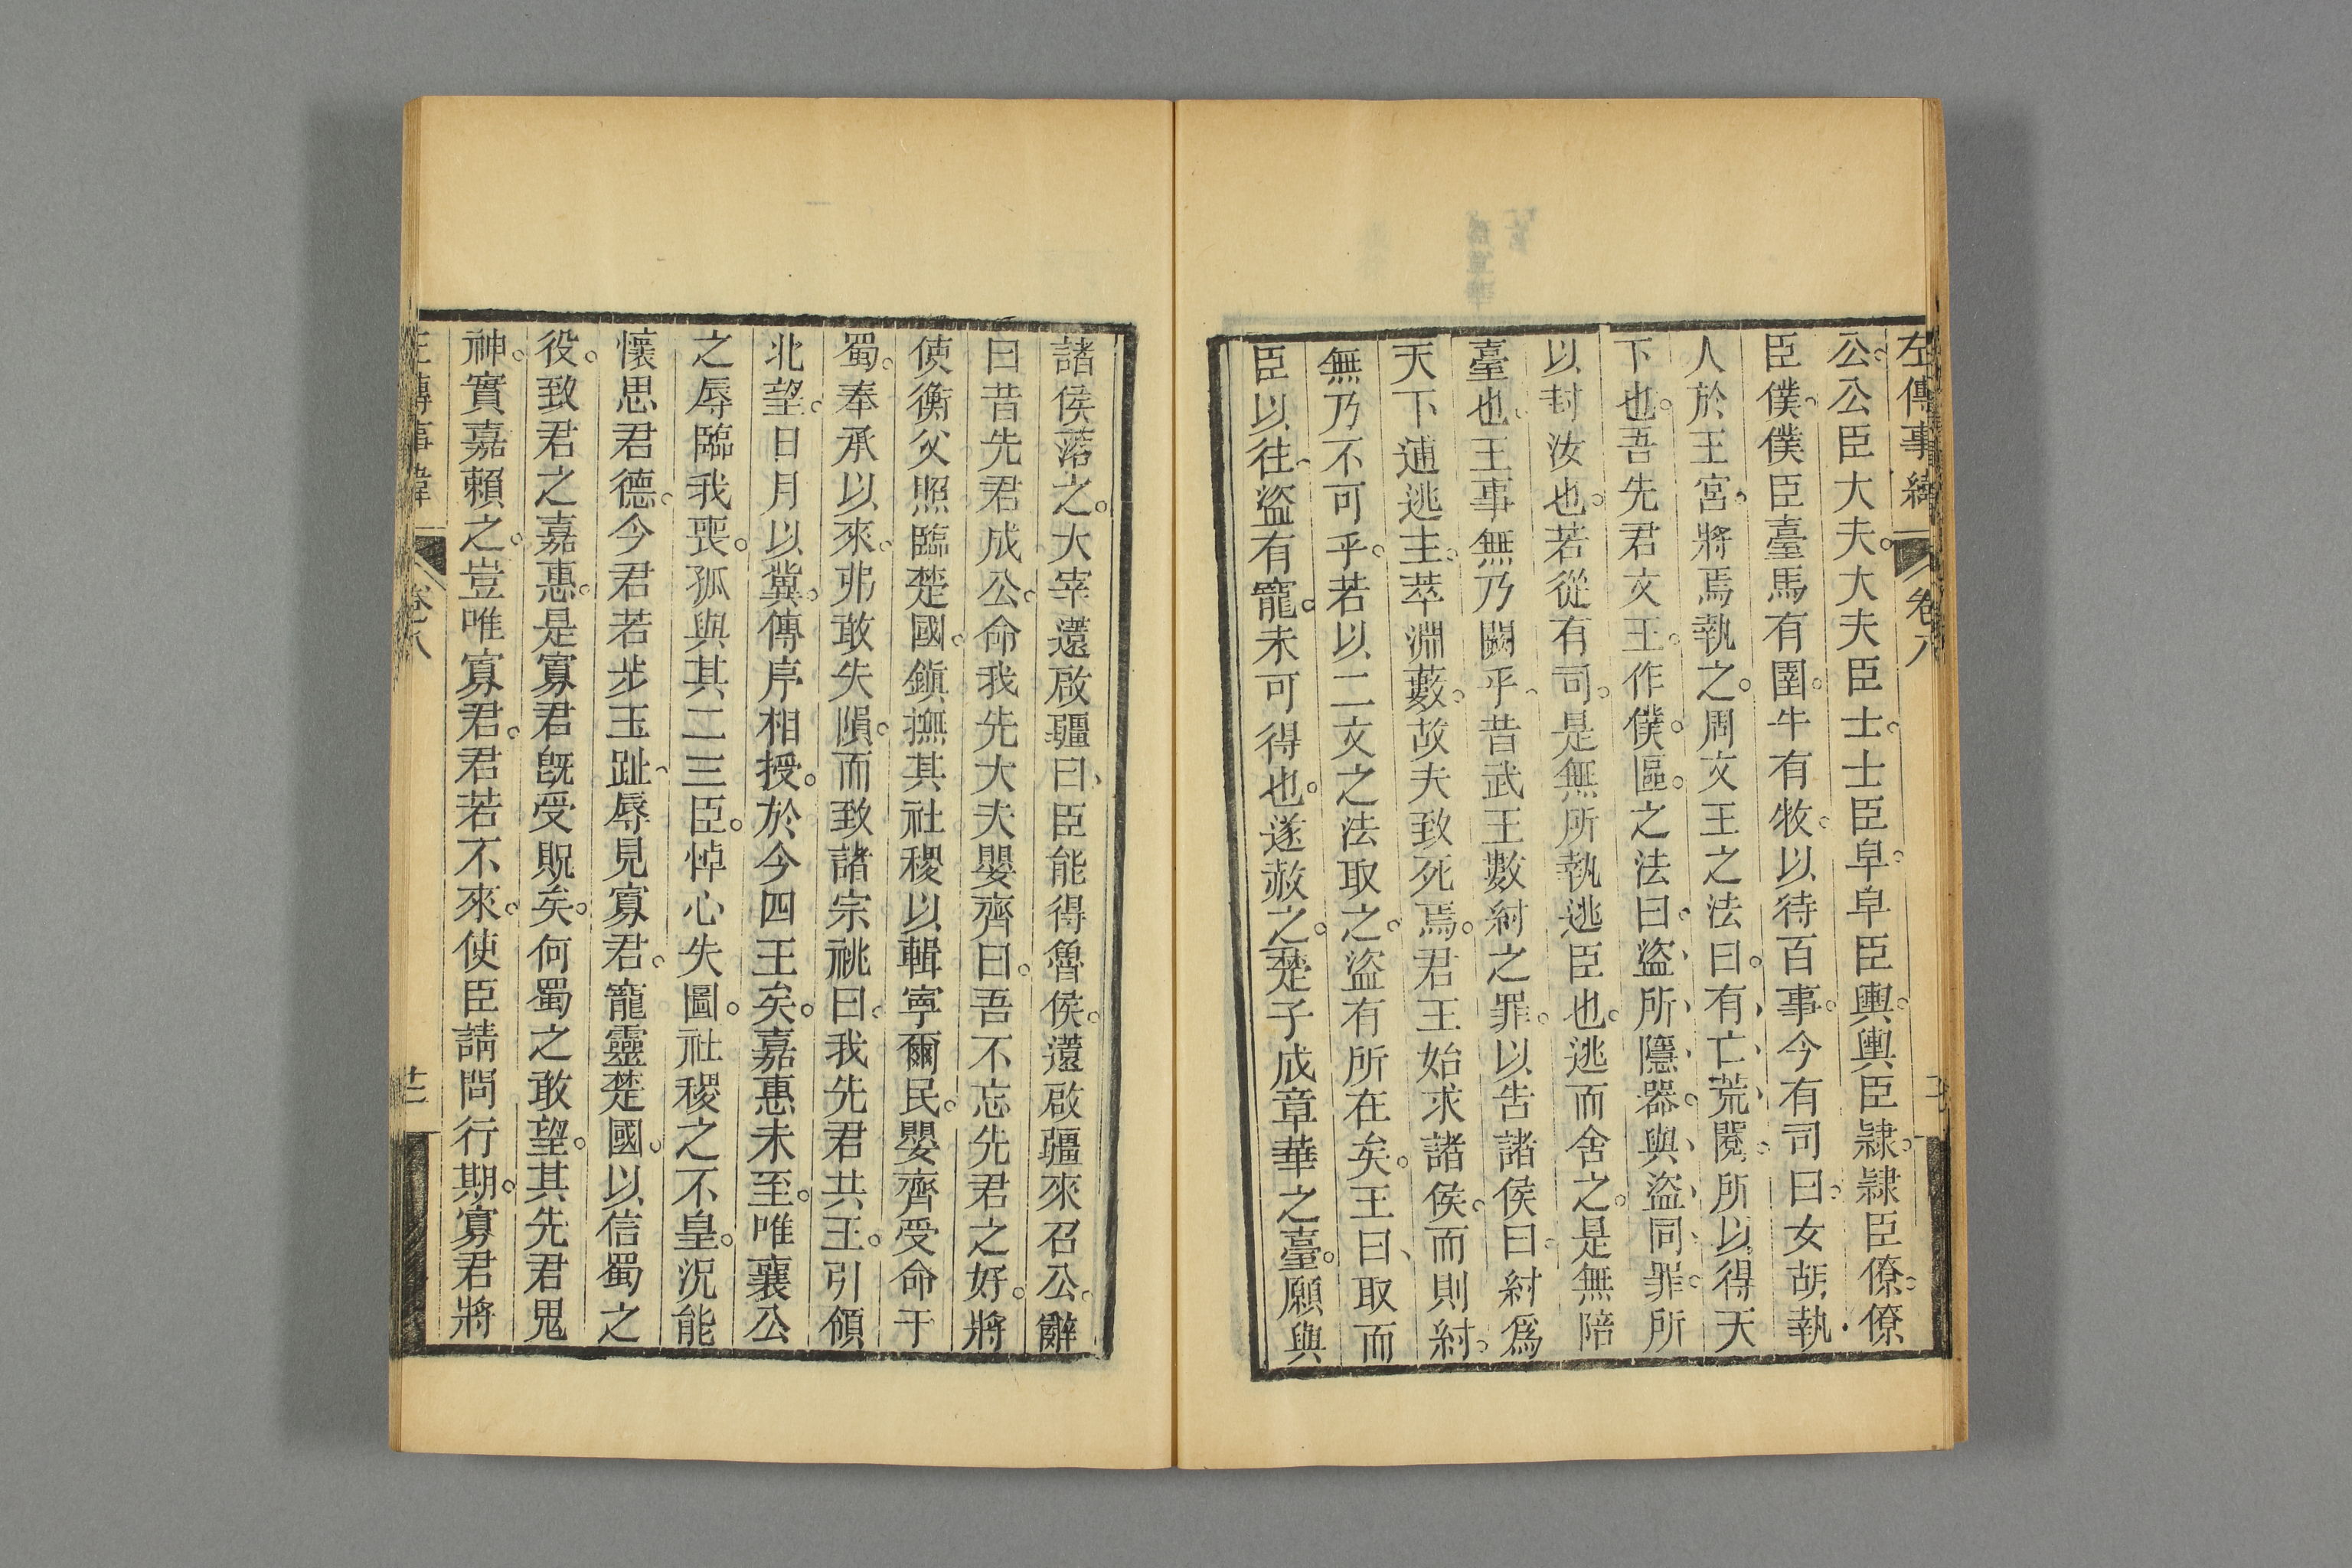 左傳事緯 卷八
公。公臣大夫。大夫臣士。士臣皁。皁臣輿。輿臣隸。隸臣僚。僚
臣僕。僕臣臺馬有圉。牛有牧。以待百事。今有司曰。女胡執
人於王宮。將焉執之。周文王之法曰。有亡荒閱。所以得天
下也。吾先君文王。作僕區。之法曰。盜所隱器。與盜同罪。所
以封汝也。若從有司。是無所執逃臣也。逃而舍之。是無陪
臺也。王事無乃闕乎。昔武王數紂之罪。以告諸侯曰。紂爲
天下逋逃主。萃淵藪。故夫致死焉。君王始求諸侯。而則紂。
無乃不可乎。若以二文之法取之。盜有所在矣。王曰、取而
臣以往、盜有寵。未可得也。遂赦之。楚子成章華之臺。願與
諸侯落之。大宰薳啟疆曰、臣能得魯侯。薳啟疆來召公。辭
曰昔先君成公。命我先大夫嬰齊曰。吾不忘先君之好。將
使衡父照臨楚國。鎭撫其社稷以輯寧爾民。嬰齊受命于
蜀。奉承以來。弗敢失隕。而致諸宗祧曰。我先君共王。引領
北望。日月以冀。傳序相授。於今四王矣。嘉惠未至。唯襄公
之辱臨我喪。孤與其二三臣。悼心失圖。社稷之不皇。況能
懷思君德。今君若步玉趾、辱見寡君。寵靈楚國。以信蜀之
役。致君之嘉惠。是寡君旣受貺矣。何蜀之敢望。其先君鬼
神。實嘉賴之。豈唯寡君。君若不來。使臣請問行期。寡君將
左傳事緯 卷八 廿